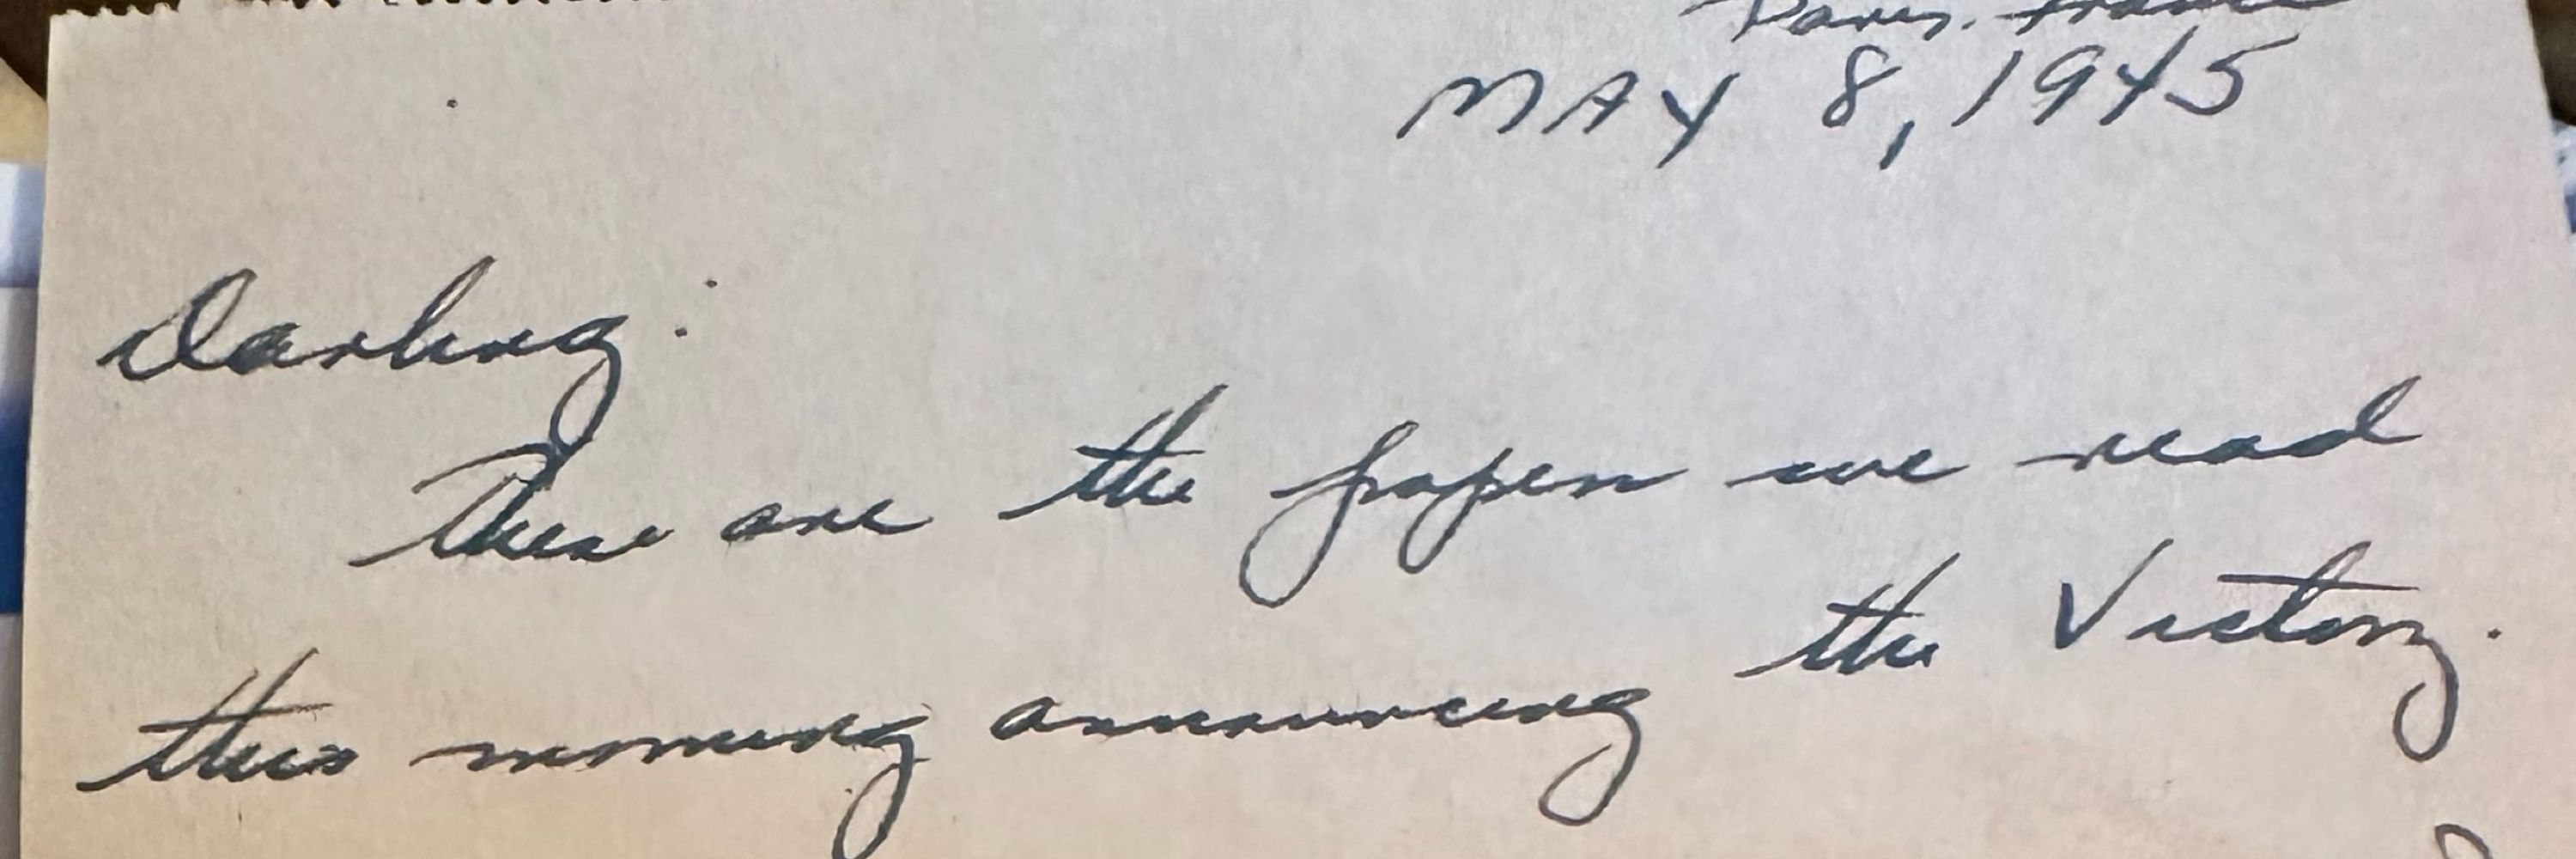 Paris, France
MAY 8, 1945
Darling:
These are the papers we read
this morning announcing the Victory.